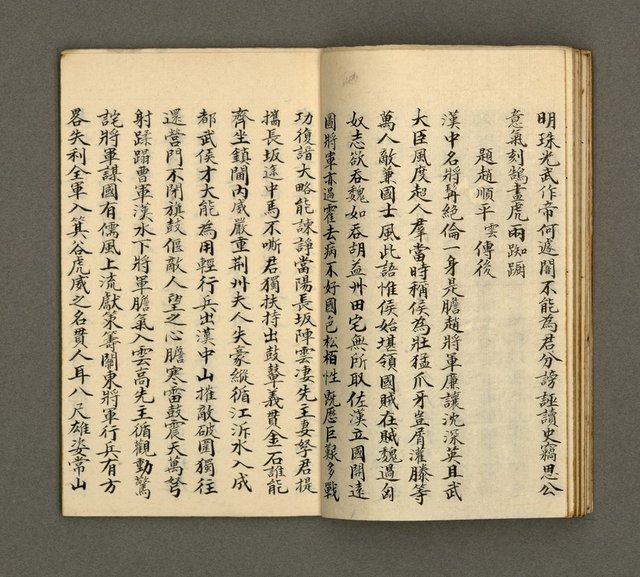 明珠光武作帝何遽閽不能為君分謗誣讀史竊思公
意氣刻鵠畫虎兩踟蹰
題趙順平雲傳後
漢中名將髯絕倫一身是膽趙將軍廉讓沈深英且武
大臣風度超人羣當時稱侯為壯猛爪牙豈屑灌滕等
萬人敵兼國士風此語惟侯始堪領國賊在賊魏過匈
奴志欲吞魏如吞胡益州田宅無所取佐漢立國開遠
圖將軍亦過霍去病不好國色松栢性既歷巨艱多戰
功復諳大略能諫諍當陽長坂陣雲凄先主妻孥君提
攜長坂途中馬不嘶君獨扶持出鼓鼙義貫金石誰能
齊坐鎮閫內威嚴重荆州夫人失豪縱循江泝水入成
都武侯才大能為用輕行兵出漢中山摧敵破圍獨往
還營門不閉旗鼓偃敵人望之心膽寒雷鼓震天萬弩
射蹂蹋曹軍漢水下將軍膽氣入雲高先主循觀動驚
詫將軍謀國有儒風上流獻策籌關東將軍行兵有方
畧失利全軍入箕谷虎威之名貫人耳八尺雄姿常山